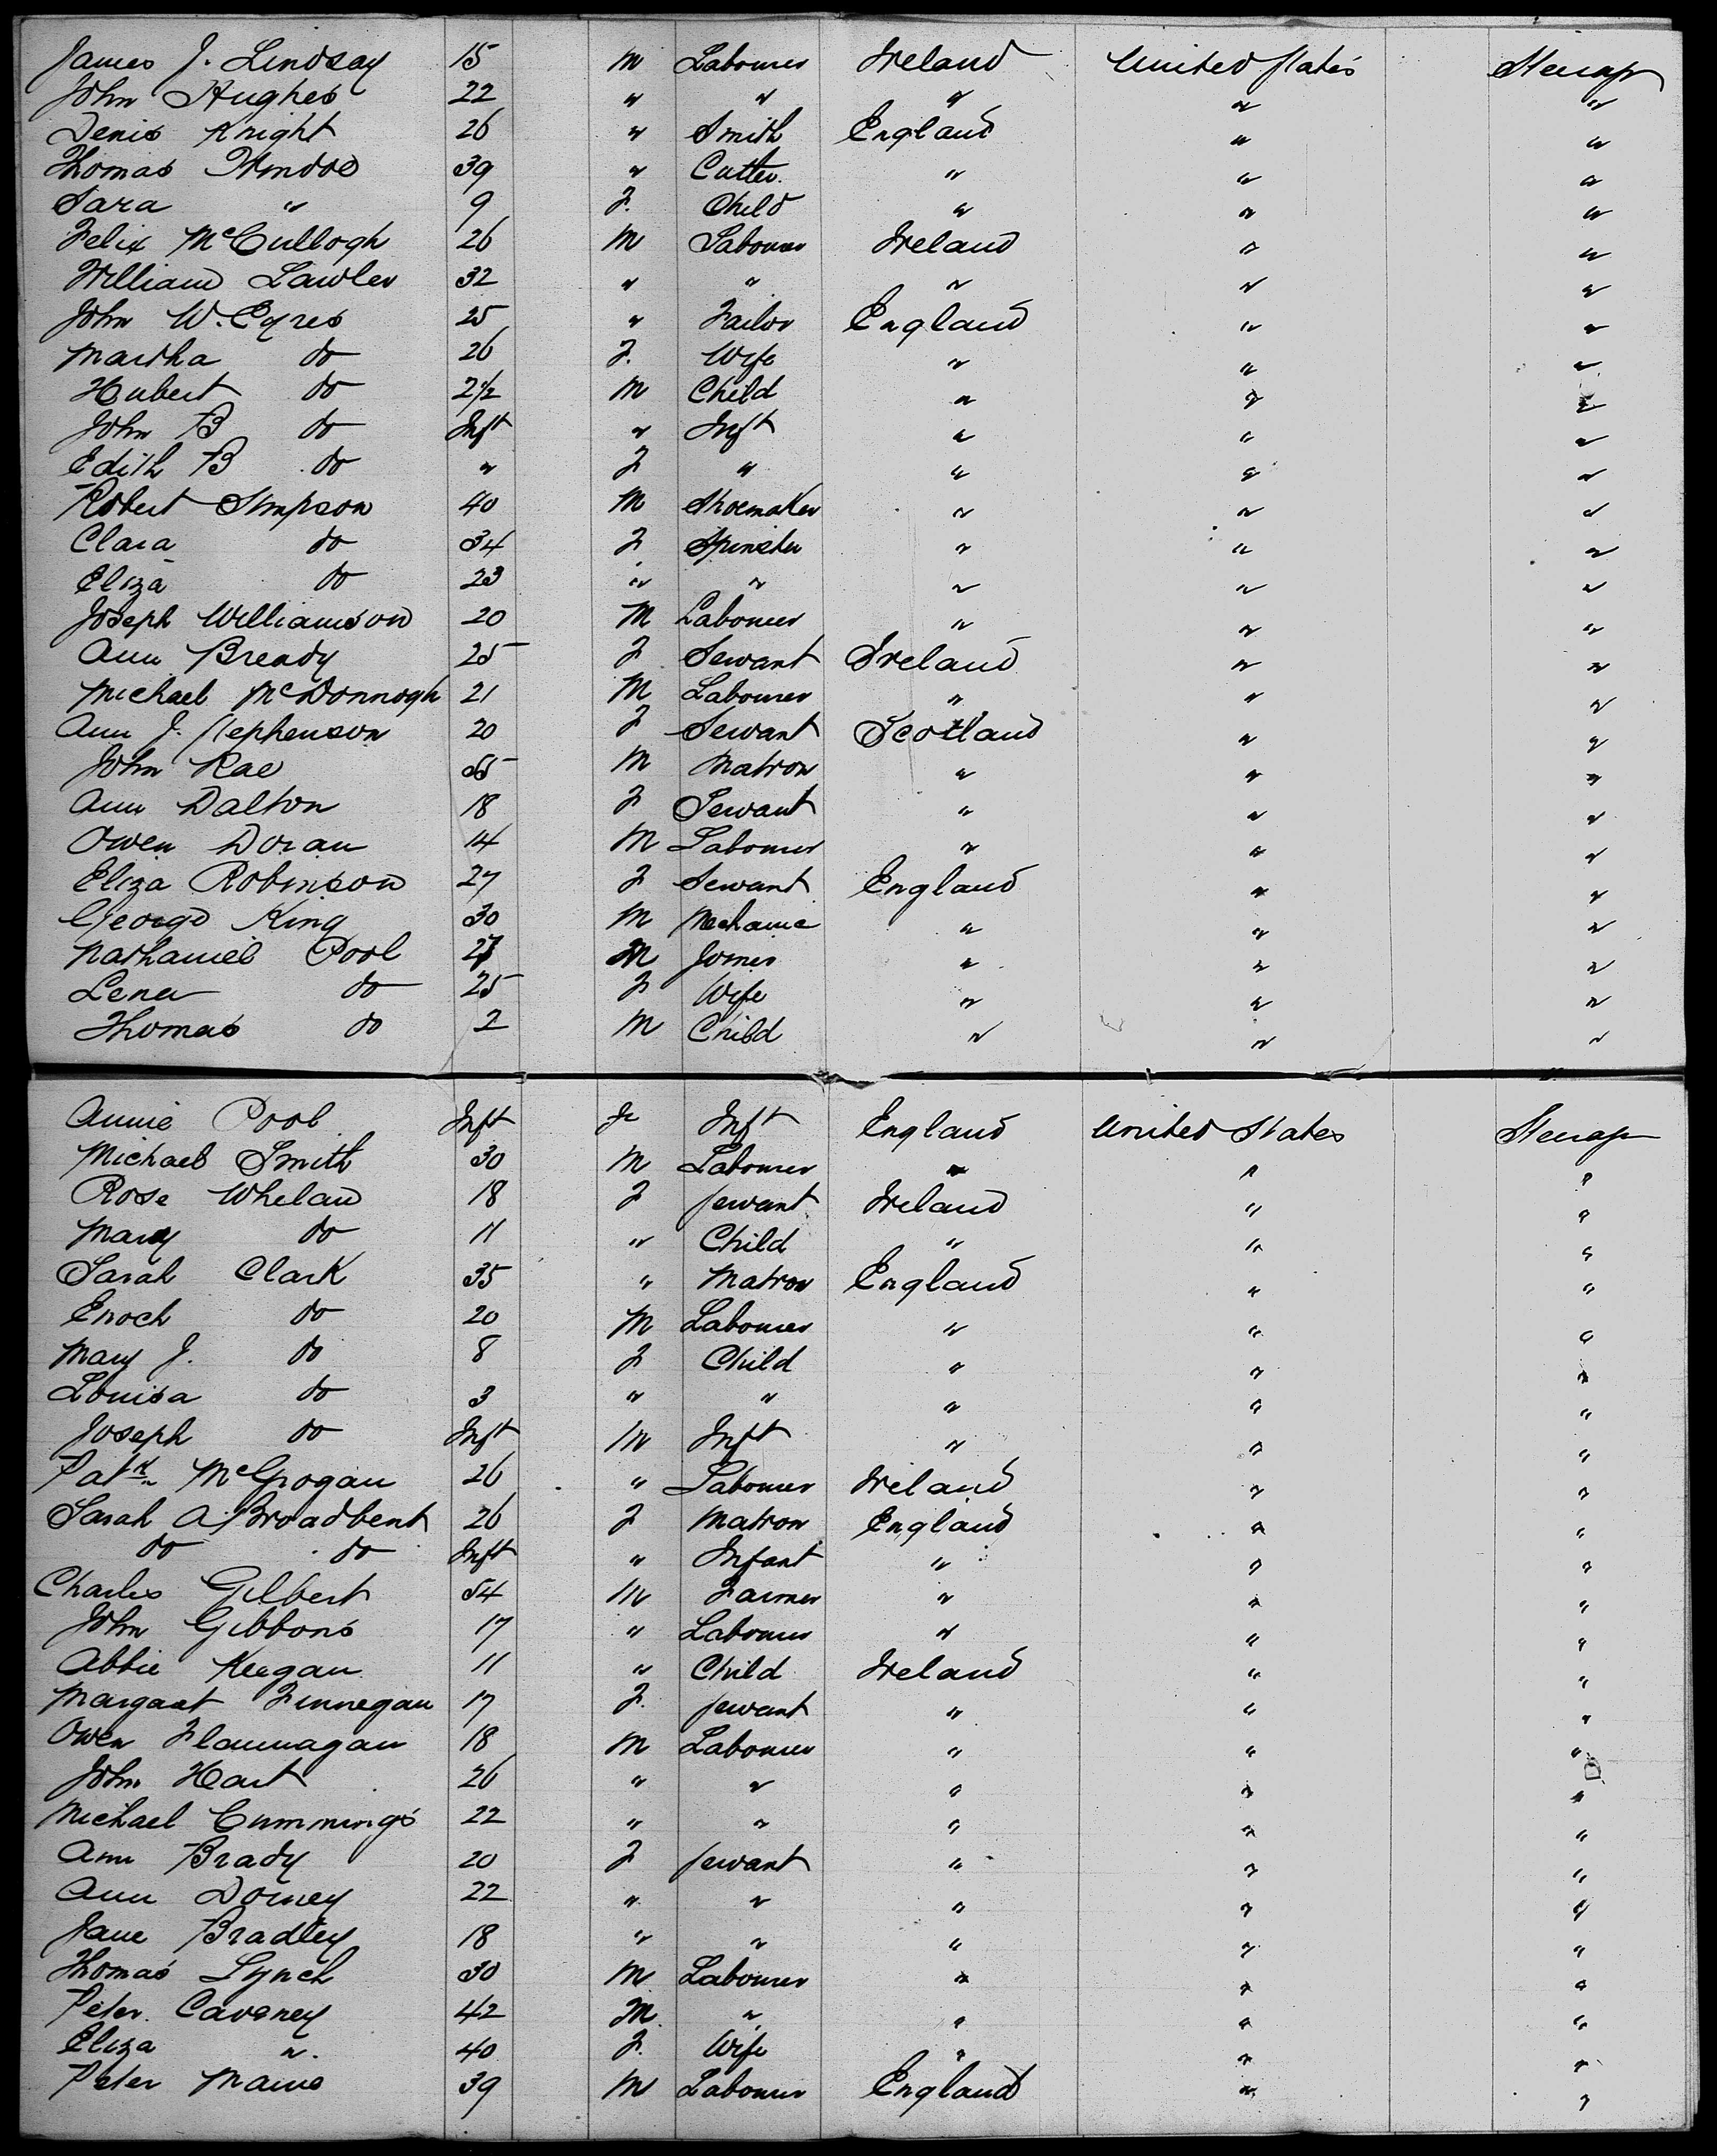 James J. Lindsay 15 M Labourer Ireland United States Steerage
John Hughes 22 " " " " "
Denis Knight 26 " Smith England " "
Thomas 39 " Cutter " " "
Sara " 9 F. Child " " "
Felix McCullogh 26 M Labourer Ireland " "
William Lawler 32 " " " " "
John W. Eyres 25 " Tailor England " "
Martha do 26 F. Wife " " "
Hubert do 2½ M Child " " "
John B do Inft " Inft " " "
Edith B do " F " " " "
Robert Simpson 40 M Shoemaker " " "
Clara do 34 F Spinster " " "
Eliza do 23 " " " " "
Joseph Williamson 20 M Labourer " " "
Ann Bready 25 F Servant Ireland " "
Michael McDonnogh 21 M Labourer " " "
Ann J. Stephenson 20 F Servant Scotland " "
John Rae 55 M Matron " " "
Ann Dalton 18 F Servant " " "
Owen Doran 14 M Labourer " " "
Eliza Robinson 27 F Servant England " "
George King 30 M Mechanic " " "
Nathaniel Pool 27 M Joiner " " "
Lena do 25 F Wife " " "
Thomas do 2 M Child " " "
Annie Pool Inft F Inft England United States Steerage
Michael Smith 30 M Labourer " " "
Rose Whelan 18 F Servant Ireland " "
Mary do 11 " Child " " "
Sarah Clark 35 " Matron England " "
Enoch do 20 M Labourer " " "
Mary J. do 8 F Child " " "
Louisa do 3 " " " " "
Joseph do Inft M Inft " " "
Patk McGrogan 26 " Labourer Ireland " "
Sarah A. Broadbent 26 F Matron England " "
do do Inft " Infant " " "
Charles Gilbert 54 M Farmer " " "
John Gibbons 17 " Labourer " " "
Abbie Keegan 11 " Child Ireland " "
Margaret Finnegan 17 F. Servant " " "
Owen Flannagan 18 M Labourer " " "
John Hart 26 " " " " "
Michael Cummings 22 " " " " "
Ann Brady 20 F Servant " " "
Ann Dorney 22 " " " " "
Jane Bradley 18 " " " " "
Thomas Lynch 30 M Labourer " " "
Peter Cavaney 42 M. " " " "
Eliza " 40 F. Wife " " "
Peter 39 M Labourer England " "